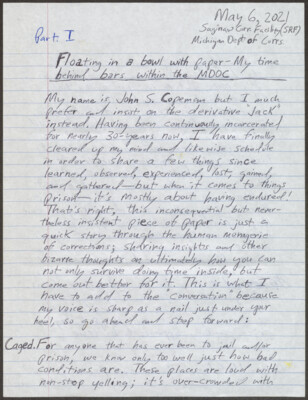 May 6, 2021
Saginaw Corr. Facility (SRF)
Michigan Dept of Corrs
Part I
Floating in a bowl with paper - My time
behind bars within the MDOC
My name is, John S. Copeman but I much
prefer and insist on the derivative "Jack"
instead. Having been continuously incarcerated
for nearly 30-years now, I have finally
cleared up my mind and likewise schedule
in order to share a few things since
learned, observed, experienced, lost, gained,
and gathered—but when it comes to things
prison—it's mostly about having endured!
That's right, this inconsequential but none-
theless insistent piece of paper is just a
quick story through the human menagerie
of corrections; sharing insights and other
bizarre thoughts on, ultimately, how you can
not only survive doing time inside, but
come out better for it. This is what I
have to add to the "conversation" because
my voice is sharp as a nail just under your
heel, so go ahead and step forward:
Caged. For anyone that has ever been to jail and/or
prison, we know only too well just how bad
conditions are. These places are loud with
non-stop yelling; it's over-crowded with